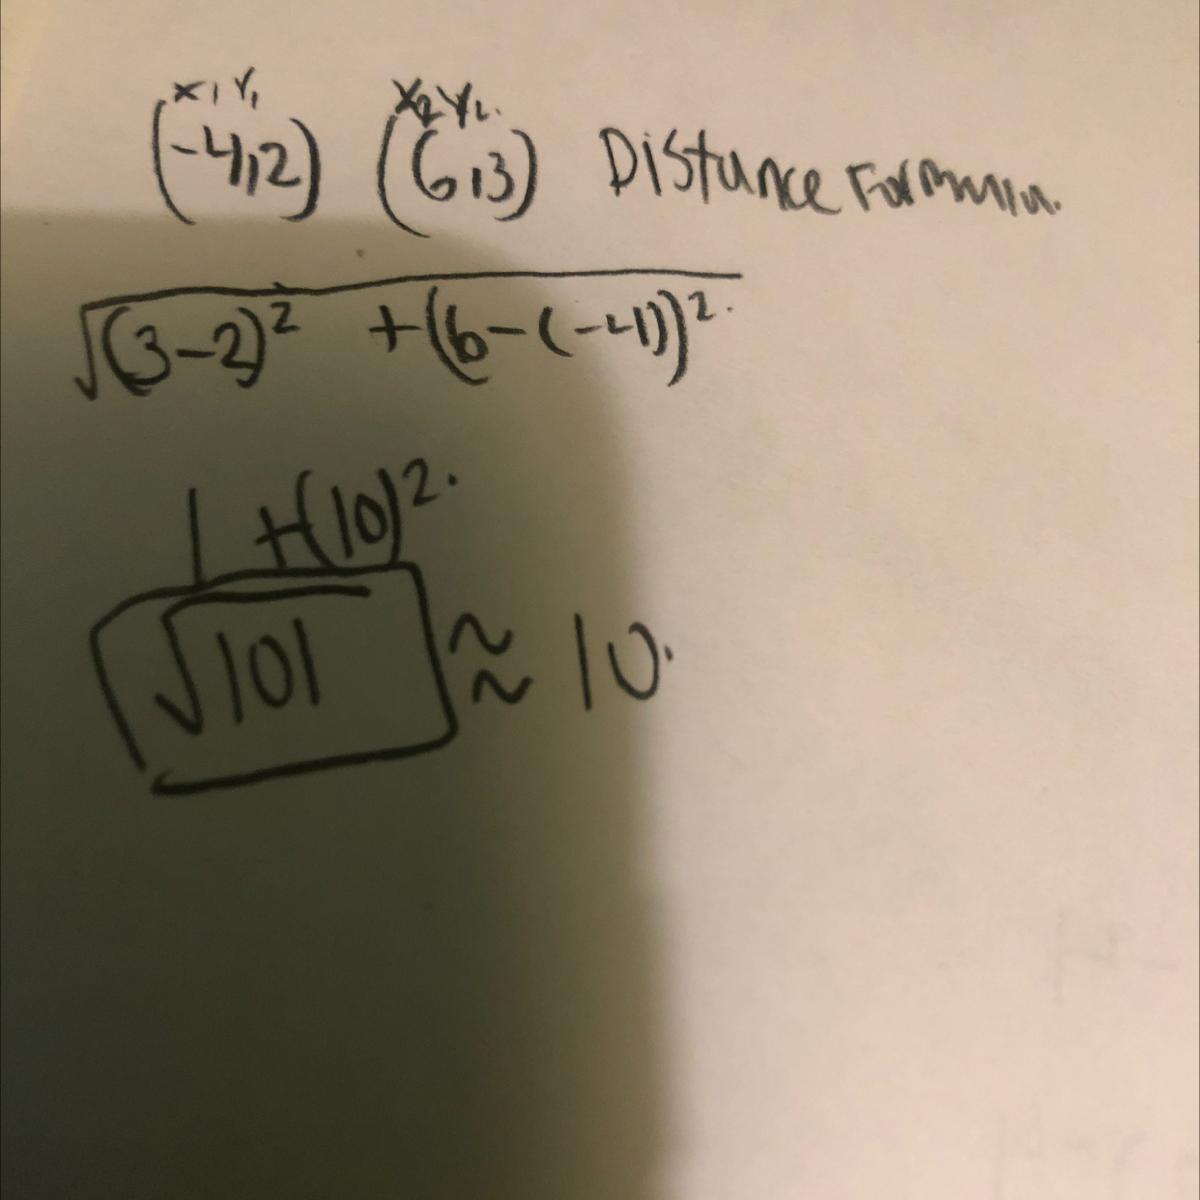 x1 Y1 X2 Y2.
(-4,2) (6,3) Distance Formula.
√(3-2)² + (6-(-4))².
1 +(10)².
√101 ≈ 10.